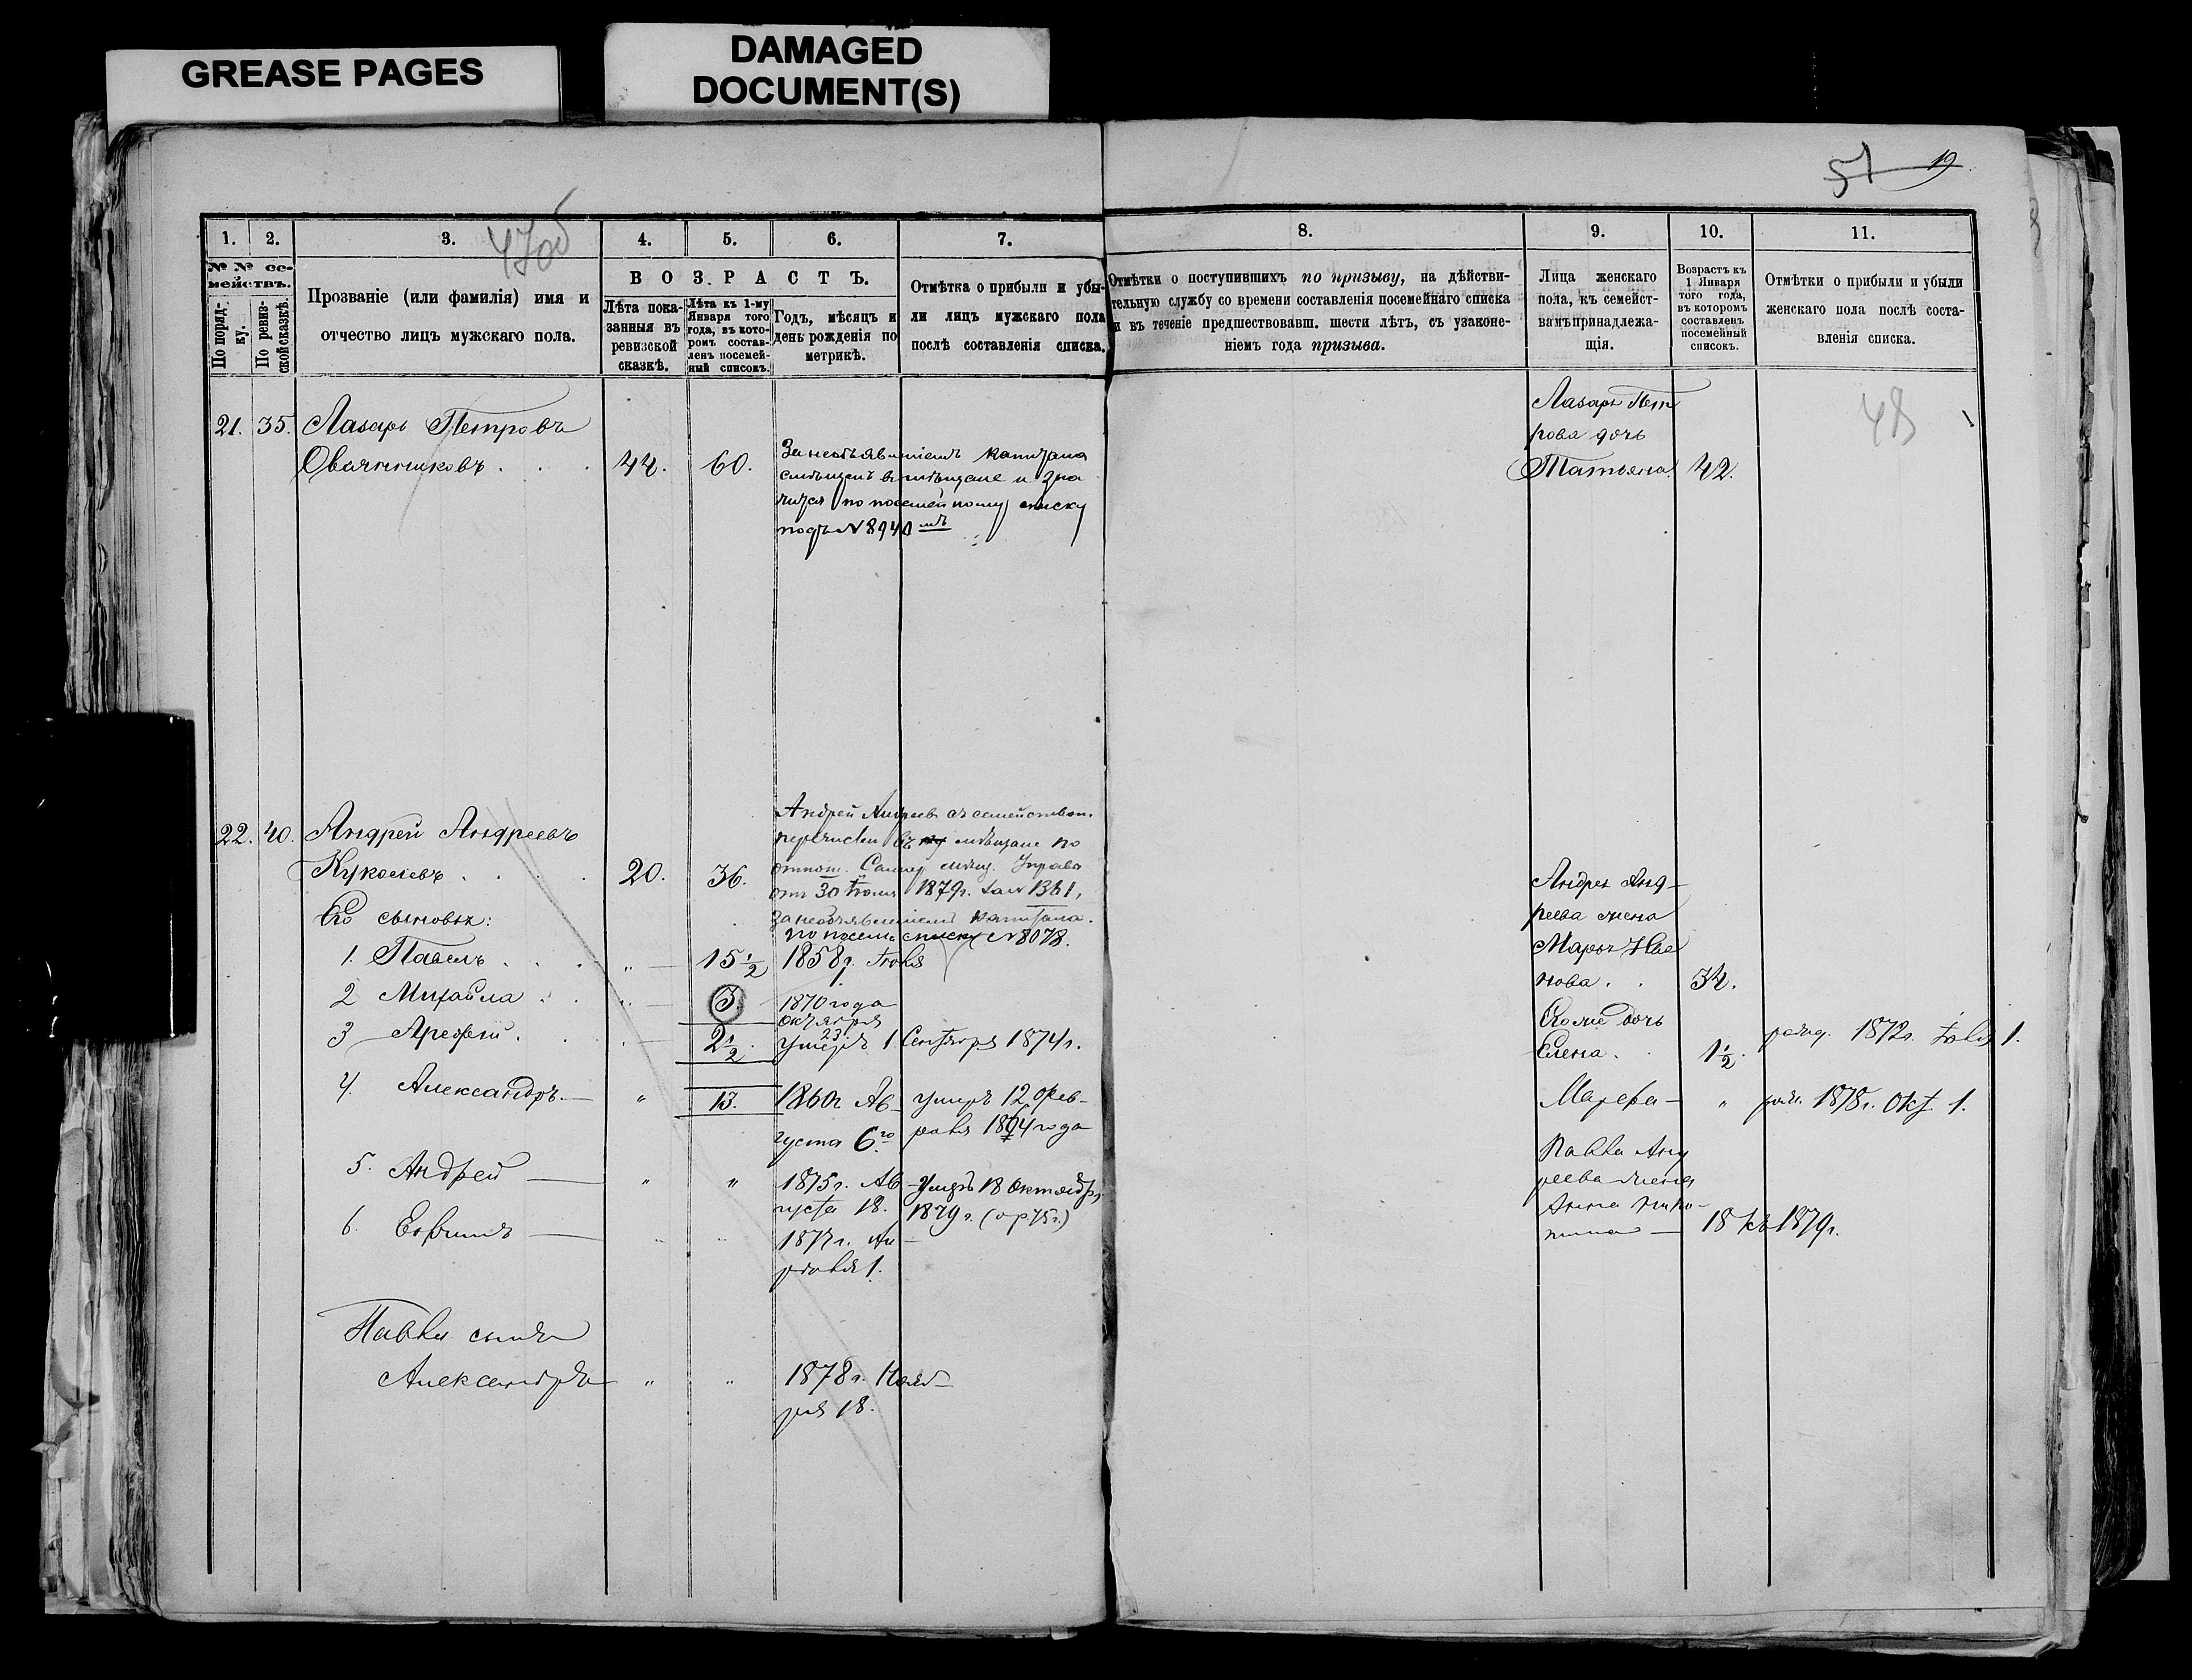 GREASE PAGES
DAMAGED
DOCUMENT(S)
51 19
47 об
1. 2. 3. 4. 5. 6. 7.
№ № се-
мействъ.
По поряд-
ку.
По ревиз-
ской сказкѣ.
Прозваніе (или фамилія) имя и
отчество лицъ мужскаго пола.
ВОЗРАСТЪ.
Лѣта пока-
занныя въ
ревизской
сказкѣ.
Лѣта къ 1-му
Января того
года, въ кото-
ромъ состав-
ленъ посемей-
ный списокъ.
Годъ, мѣсяцъ и
день рожденія по
метрикѣ.
Отмѣтка о прибыли и убы-
ли лицъ мужскаго пола
послѣ составленія списка.
8. 9. 10. 11.
Отмѣтки о поступившихъ по призыву, на дѣйстви-
тельную службу со времени составленія посемейнаго списка
и въ теченіе предшествовавш. шести лѣтъ, съ узаконе-
ніемъ года призыва.
Лица женскаго
пола, къ семейст-
вамъ принадлежа-
щія.
Возрастъ къ
1 Января
того года,
въ которомъ
составленъ
посемейный
списокъ.
Отмѣтки о прибыли и убыли
женскаго пола послѣ соста-
вленія списка.
48
21. 35. Лазарь Петровъ
Овчинниковъ . . . 44. 60.
За необъявленіемъ капитала
въ мѣщане и зна
чится по посемейному списку
подъ № 8940 мъ
Лазаря Пет
рова дочь
Татьяна 42.
22. 40. Андрей Андреевъ
. . . . 20. 36.
Андрей Андреевъ съ семействомъ
перечислен въ мѣщане по
отнош. Самар. мѣщ. Управы
отъ 30 1879 г. за № 1361,
за необъявленіемъ капитала.
по посем. списку № 8078.
Его сыновья:
1. Павелъ . . . „ — 15 1/2 1858 г. Іюня
2 Михайла . . „ — 3. 1870 года
октября
23
3 Арефій . . — 2 1/2 умеръ 1 Сентября 1874 г.
4. Александръ — „ 13. 1860 г. Ав-
густа 6 го
умеръ 12 Фев-
раля года
5. Андрей — „ „ 1875 г. Ав-
густа 18.
Умеръ 18 октября
1879 г.
6. Ефимъ — „ „ г. Ап-
рѣля 1.
Павла сынъ
Александръ „ „ 1878 г. Нояб-
ря 18.
Андрея Анд-
реева жена
Марья Ива
нова . . 34.
Его же дочь
Елена . . 1 1/2. рожд. 1872 г. Іюля 1.
— „ рож. 1878 г. Окт. 1.
Павла Анд
реева жена
Анна
— 18 къ 1879 г.